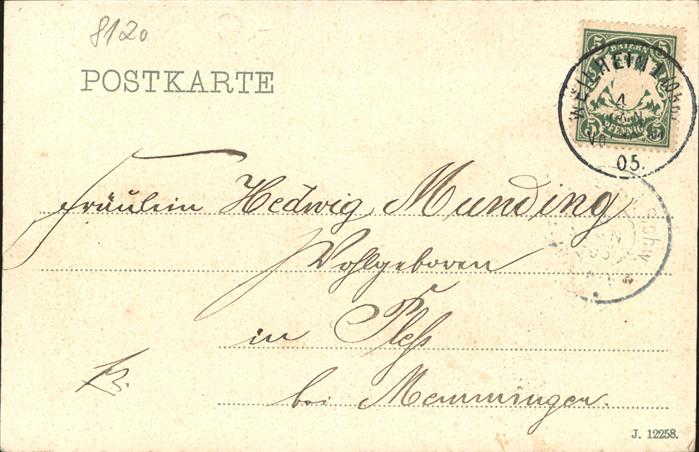 8120
POSTKARTE
5 BAYERN 5
5 PFENNIG 5
WEILHEIM
4
JAN
05.
Fräulein Hedwig Munding
Wohlgeboren
in Pleß
bei Memmingen.
J. 12258.